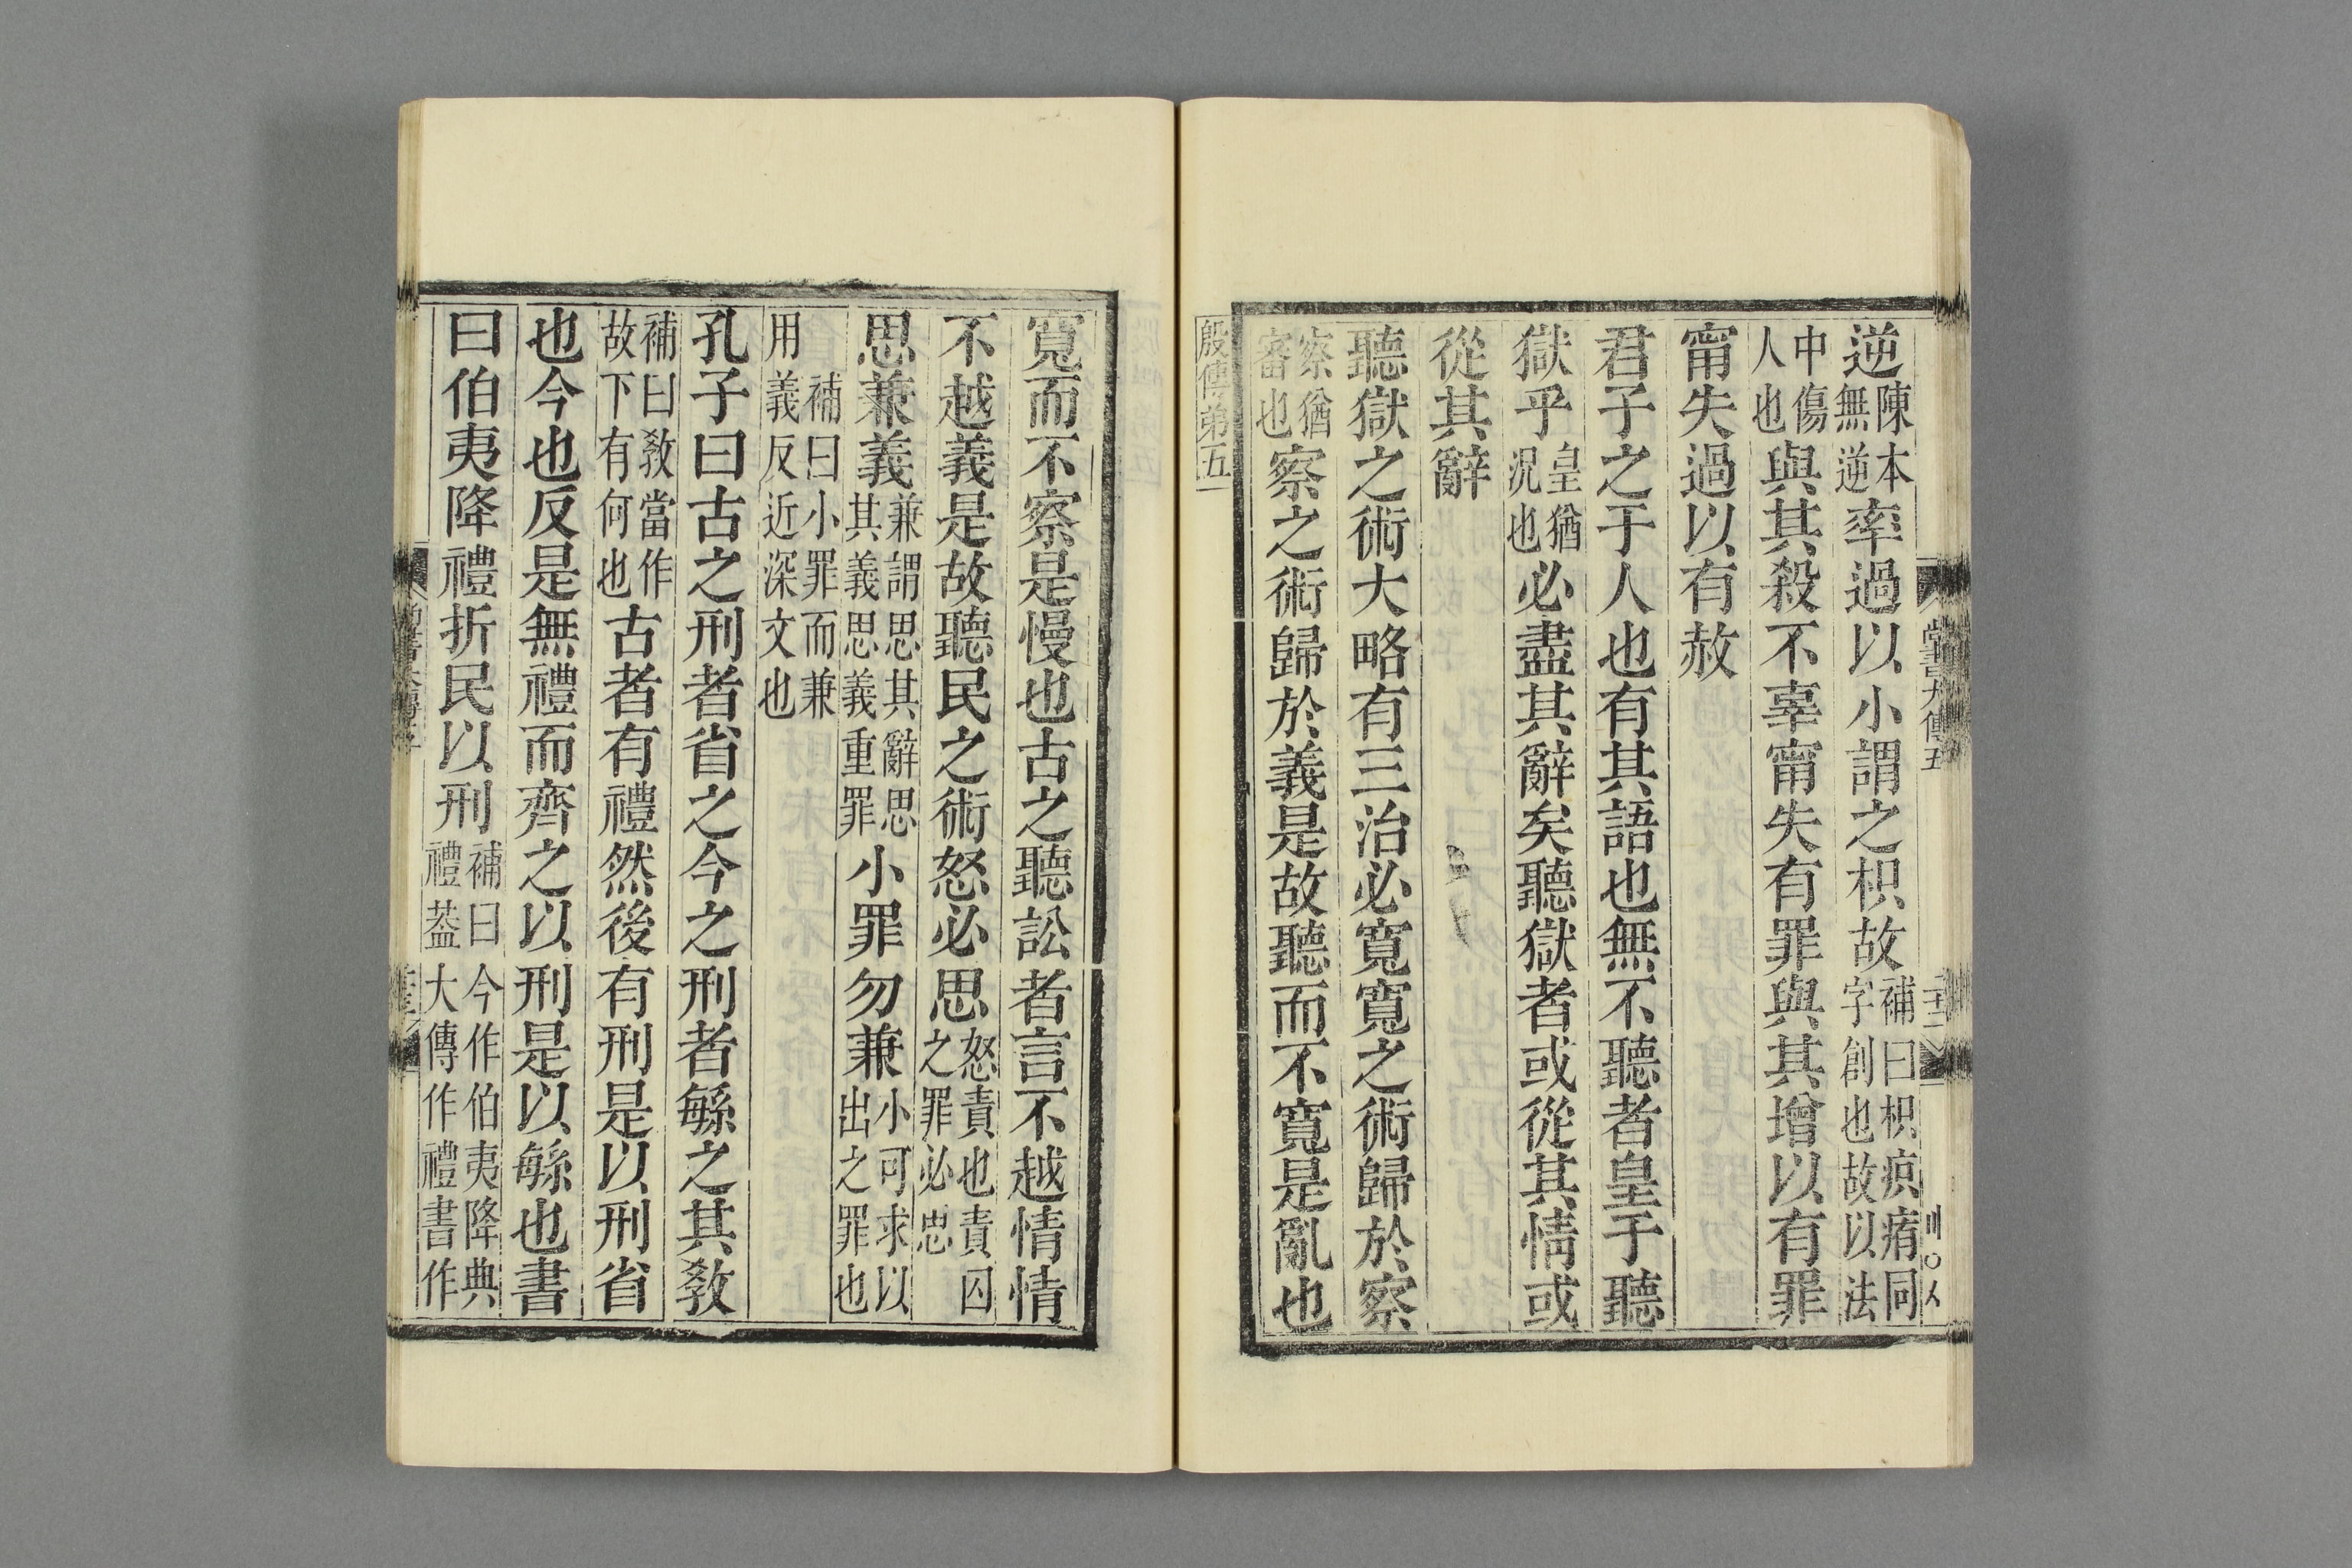 逆陳本無逆率過以小謂之枳故補曰枳疻痏同字創也故以法
中傷人也與其殺不辜甯失有罪與其增以有罪
甯失過以有赦
君子之于人也有其語也無不聽者皇于聽
獄乎皇猶況也必盡其辭矣聽獄者或從其情或
從其辭
聽獄之術大略有三治必寬寬之術歸於察
察猶審也察之術歸於義是故聽而不寬是亂也
殷傳弟五
寬而不察是慢也古之聽訟者言不越情情
不越義是故聽民之術怒必思怒責也責囚之罪必思
思兼義兼謂思其辭思其義思義重罪小罪勿兼小可求以出之罪也
用補曰小罪而兼義反近深文也
孔子曰古之刑者省之今之刑者緐之其敎
補曰敎當作故下有何也古者有禮然後有刑是以刑省
也今也反是無禮而齊之以刑是以緐也書
曰伯夷降禮折民以刑補曰今作伯夷降典禮葢大傳作禮書作